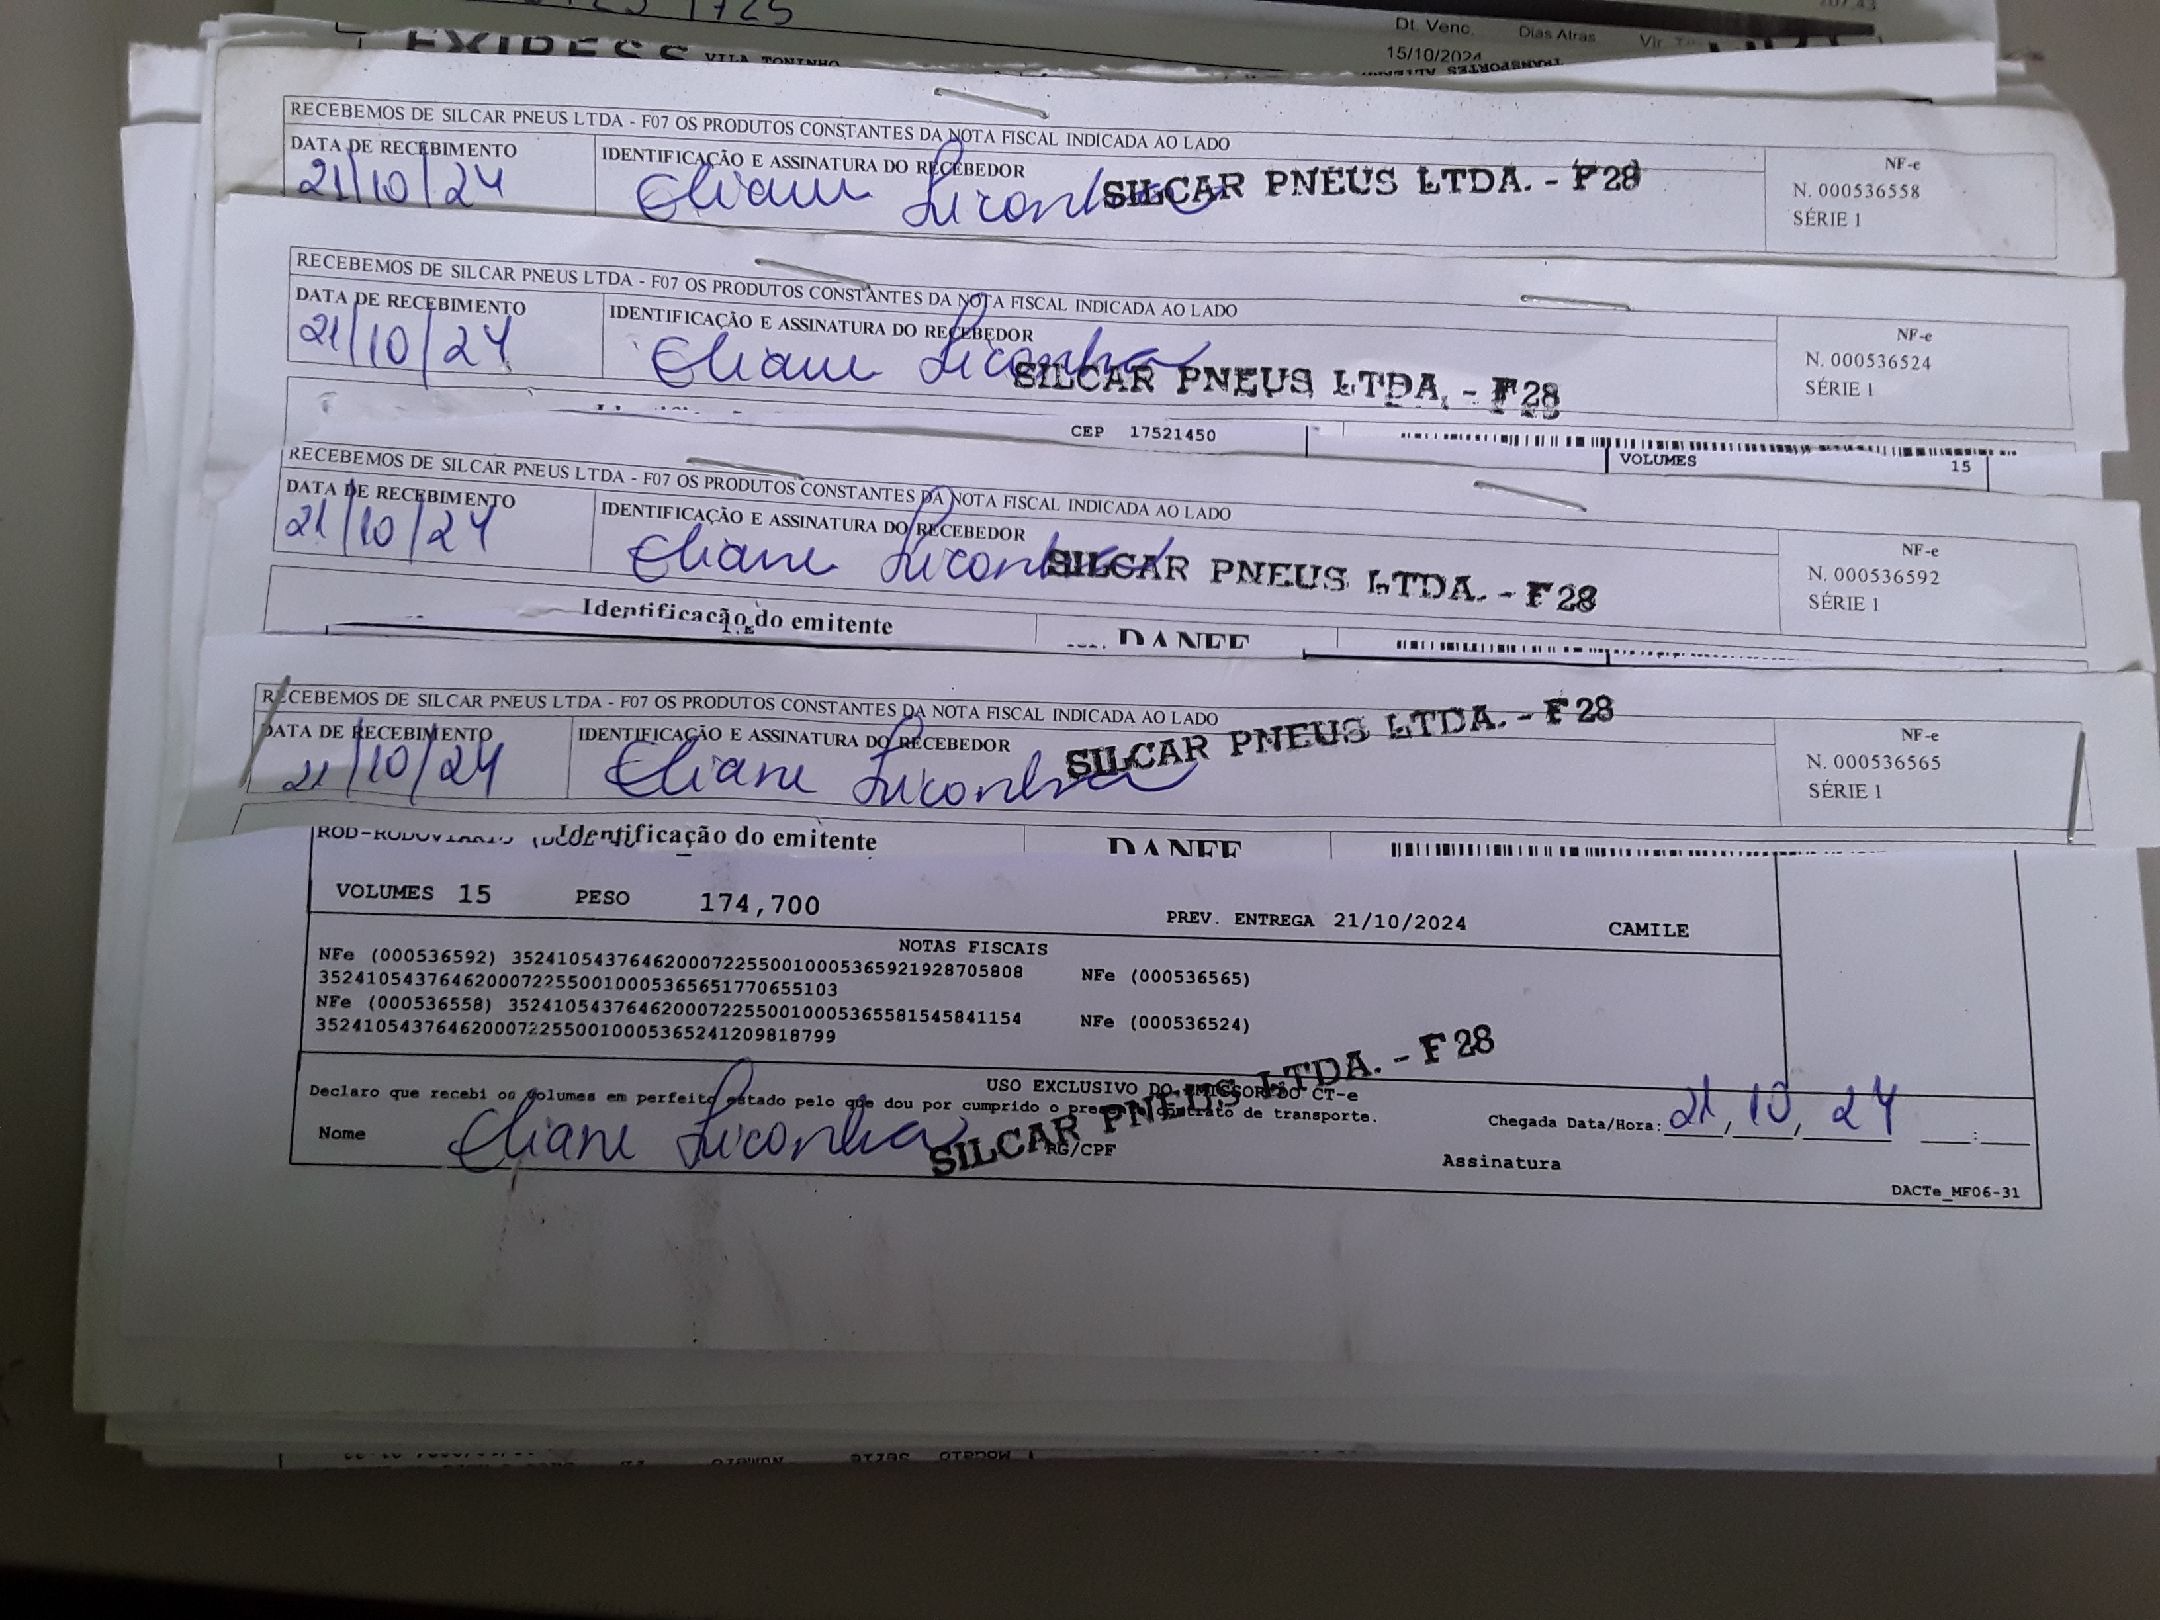 1725
Dt. Venc. Dias Atras
15/10/2024
EXPRESS VILA TONINHO
RECEBEMOS DE SILCAR PNEUS LTDA - F07 OS PRODUTOS CONSTANTES DA NOTA FISCAL INDICADA AO LADO
DATA DE RECEBIMENTO IDENTIFICAÇÃO E ASSINATURA DO RECEBEDOR NF-e
21/10/24 Eliane SILCAR PNEUS LTDA. - F28 N. 000536558
SÉRIE 1
RECEBEMOS DE SILCAR PNEUS LTDA - F07 OS PRODUTOS CONSTANTES DA NOTA FISCAL INDICADA AO LADO
DATA DE RECEBIMENTO IDENTIFICAÇÃO E ASSINATURA DO RECEBEDOR NF-e
21/10/24 Eliane SILCAR PNEUS LTDA. - F28 N. 000536524
SÉRIE 1
CEP 17521450
VOLUMES 15
RECEBEMOS DE SILCAR PNEUS LTDA - F07 OS PRODUTOS CONSTANTES DA NOTA FISCAL INDICADA AO LADO
DATA DE RECEBIMENTO IDENTIFICAÇÃO E ASSINATURA DO RECEBEDOR NF-e
21/10/24 Eliane SILCAR PNEUS LTDA. - F28 N. 000536592
SÉRIE 1
Identificação do emitente DANFE
RECEBEMOS DE SILCAR PNEUS LTDA - F07 OS PRODUTOS CONSTANTES DA NOTA FISCAL INDICADA AO LADO
DATA DE RECEBIMENTO IDENTIFICAÇÃO E ASSINATURA DO RECEBEDOR NF-e
21/10/24 Eliane SILCAR PNEUS LTDA. - F28 N. 000536565
SÉRIE 1
Identificação do emitente DANFE
VOLUMES 15 PESO 174,700 PREV. ENTREGA 21/10/2024 CAMILE
NOTAS FISCAIS
NFe (000536592) 35241054376462000722550010005365921928705808 NFe (000536565)
35241054376462000722550010005365651770655103
NFe (000536558) 35241054376462000722550010005365581545841154 NFe (000536524)
35241054376462000722550010005365241209818799
USO EXCLUSIVO DO EMISSOR DO CT-e
Declaro que recebi os volumes em perfeito estado pelo que dou por cumprido o presente contrato de transporte. Chegada Data/Hora: 21, 10, 24 :
Nome Eliane SILCAR PNEUS LTDA. - F28 RG/CPF Assinatura
DACTe_MF06-31